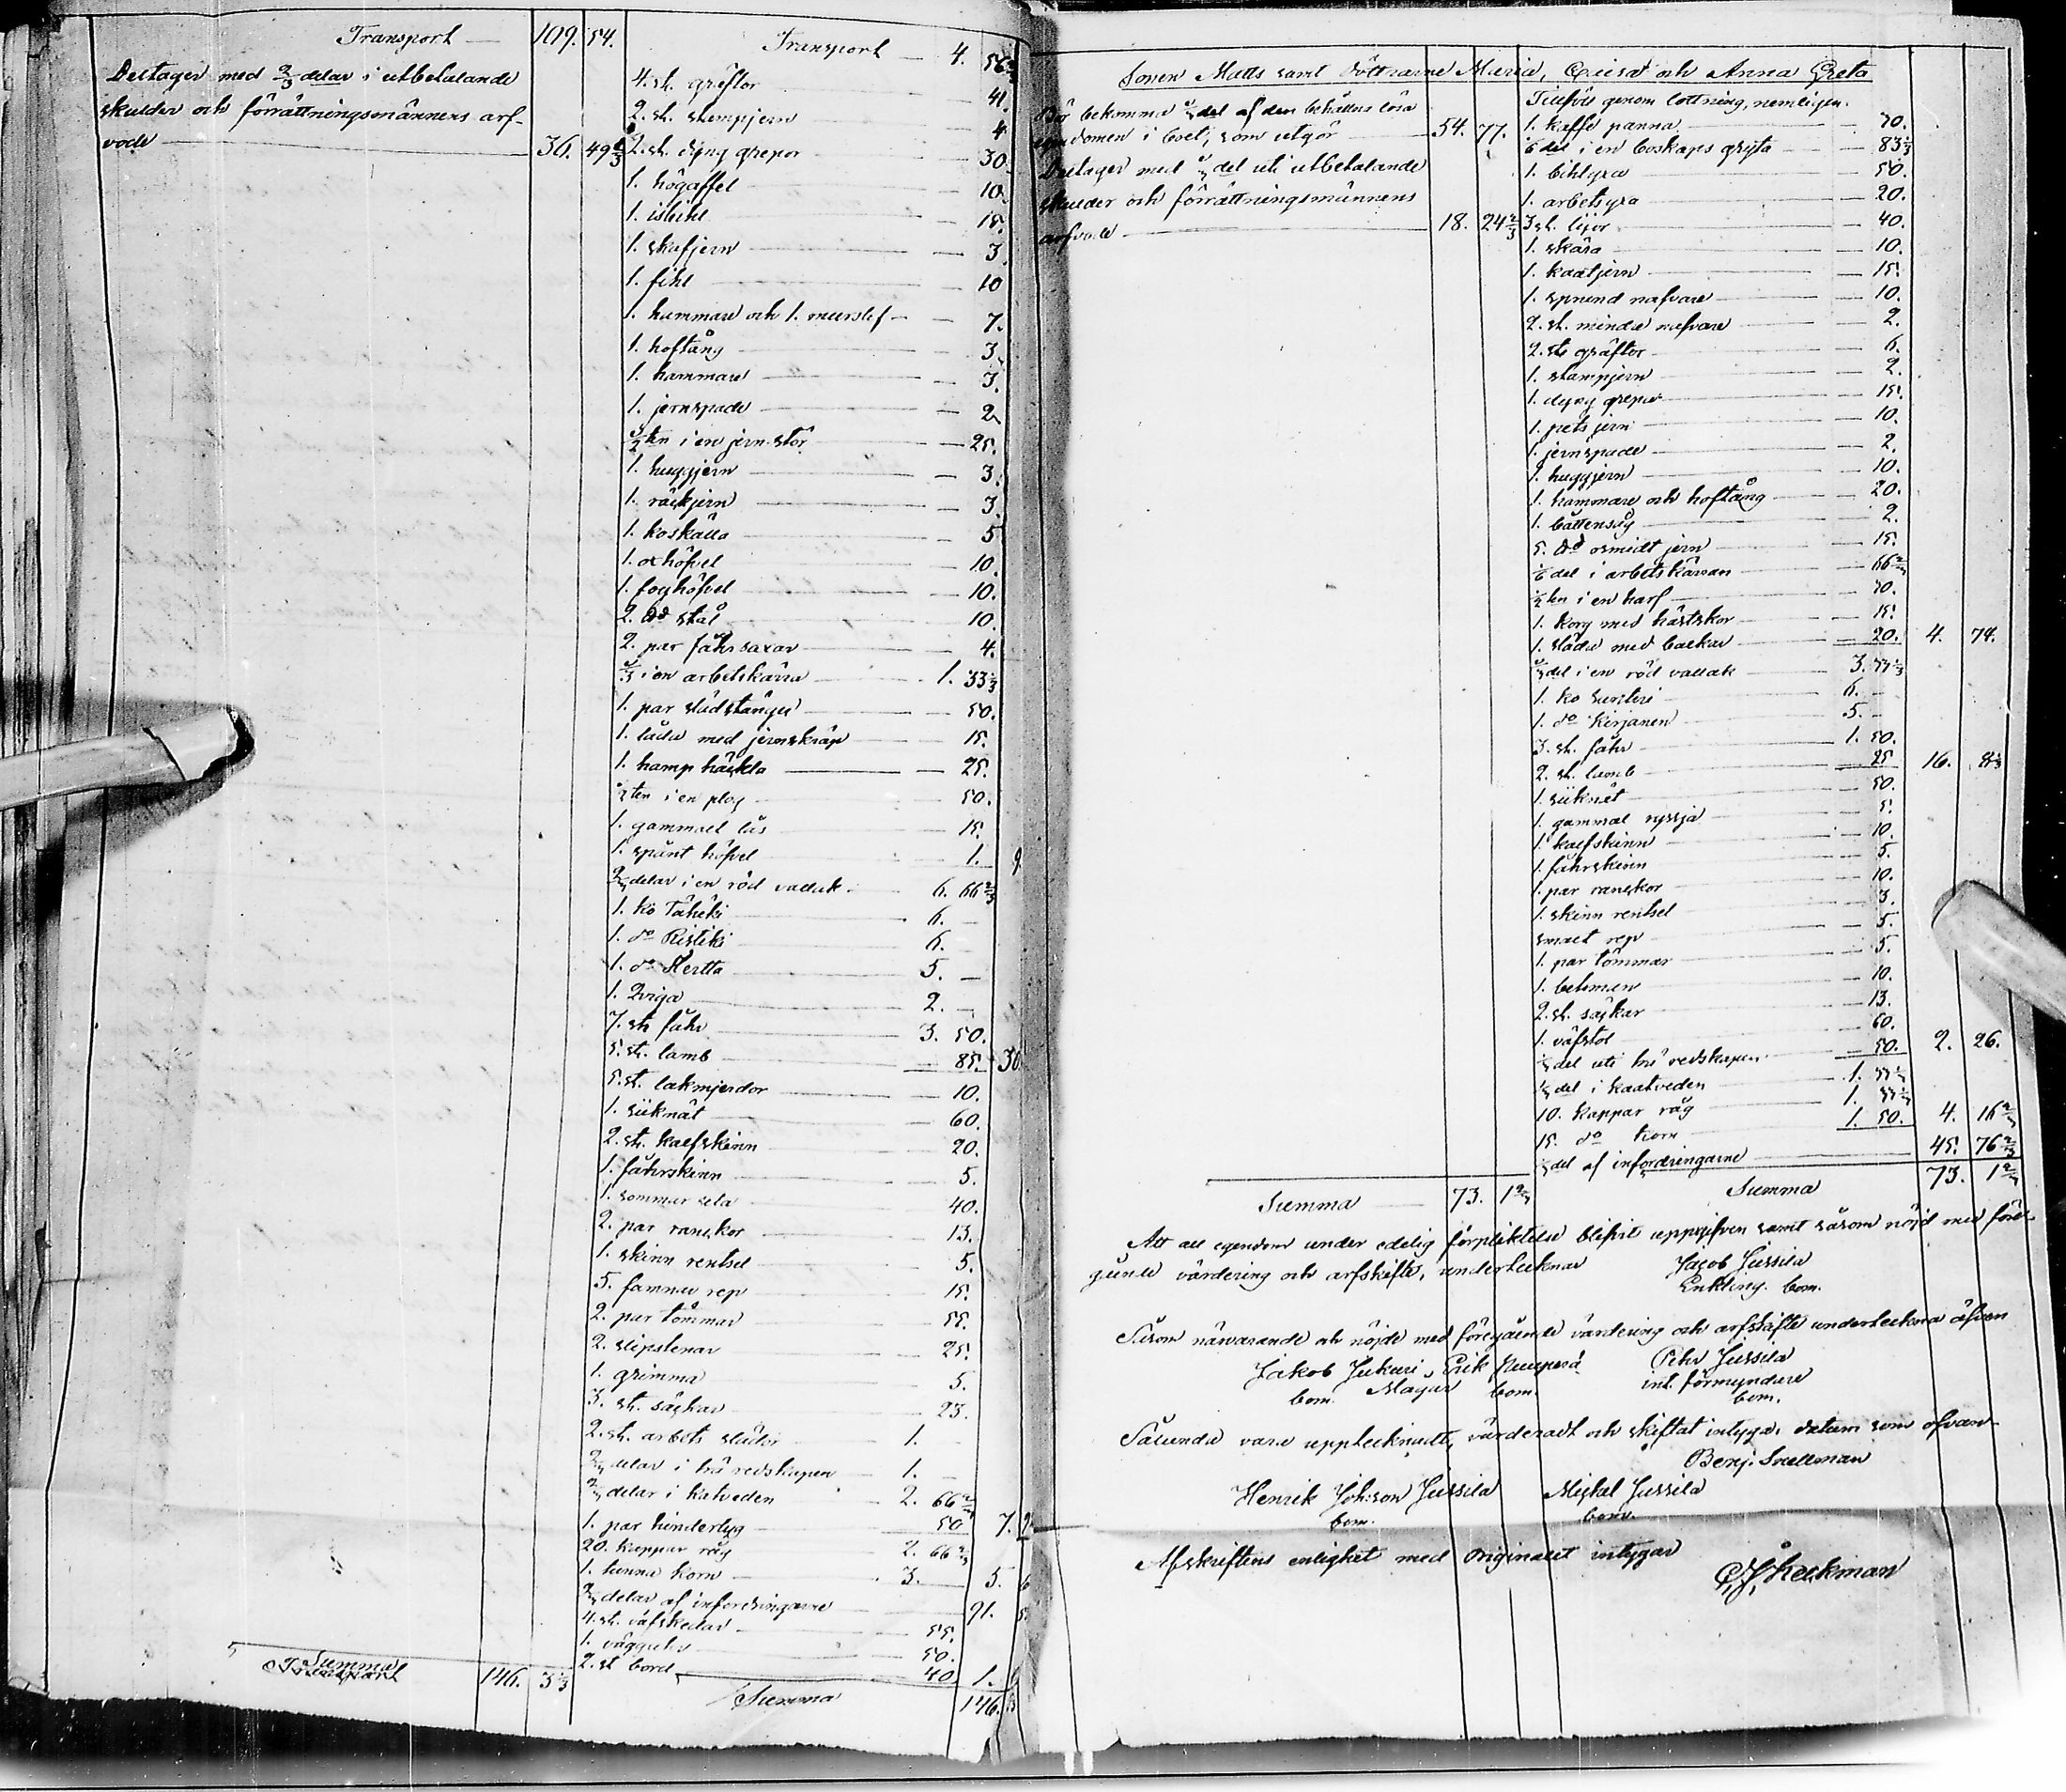 Transport 109. 54.
Deltager med 2/3 delar i utbetalande
skulder och förrättningsmännens arf-
vode 36. 49 1/3
Summa 146. 3 1/3
Transport 4. 56
4. st. gräftor 41.
2. st. stempjern 4.
2. st. dyng grepor 30.
1. högaffel 10.
1. isbihl 15.
1. skafjern 3.
1. fihl 10
1. hammare och 1. murslef 7.
1. hoftång 3.
1. hammare 3.
1. jernspade 2
1/2 ten i en jern stör 25.
1. huggjern 3.
1. räckjern 3.
1. koskälla 5
1. oxhöfvel 10.
1. foghöfvel 10.
2. ℔ stål 10.
2. par fåhrsaxar 4.
2/3 i en arbetskärra 1. 33 1/3
1. par slädstänger 50.
1. låda med jernskräp 15.
1. hamp häckla 25.
1/2 ten i en plog 50.
1. gammalt lås 15.
1. spånt höfvel 1. 9
2/3 delar i en röd vallak 6. 66 2/3
1. ko Tähiki 6. —
1. do Ristiki 6.
1. do Hertta 5. —
1. Qviga 2. —
7. st fåhr 3. 50.
5. st. lamb 85. 30
5. st. lakmjerdor 10.
1. siknät 60.
2. st. kalfskinn 20.
1. fåhrskinn 5.
1. sommar sela 40.
2. par ranckor 13.
1. skinn rentsel 5.
5. famnar rep 15.
2. par tömmar 55.
2. slipstenar 25.
1. grimma 5.
3. st. säckar 23.
2. st. arbets slädor 1. —
2/3 delar i trä redskapen 1. —
2/3 delar i katveden 2. 66 2/3
1. par hindertyg 50 7.
20. kappar råg 2. 66 2/3
1. tunna korn 3. 5.
2/3 delar af infordringarne 91.
4. st. väfskedar 55.
1. 50.
2. st bord 40 1.
Summa 146.
Sonen Matts samt döttrarne Maria, Caisa och Anna Greta
Bör bekomma 1/3 del af den behållna lösa
egendomen i boet, som utgör 54. 77.
Deltager med 1/3 del uti utbetalande
skulder och förrättningsmännens
arfvode 18. 24 2/3
Tillföll genom lottning, nemligen.
1. kaffe panna 70.
1/6 del i en boskaps gryta 83 1/3
1. bihlyxa 50.
1. arbetsyxa 20.
3 st. lijor 40.
1. skära 10.
1. kaatjern 15.
1. spnund nafvare 10.
2. st. mindre nafvare 2.
2. st gräftor 6.
1. stampjern 2.
1. dyng grepe 15.
1. pets jern 10.
1. jernspade 2.
1. huggjern 10.
1. hammare och hoftång 20.
1. båttensåg 2.
5. ℔ osmidt jern 15.
1/6 del i arbetskärran 66 2/3
1/2 ten i en harf 70.
1. korg med hästskor 15.
1. släda med backar 20. 4. 74.
1/3 del i en röd vallak 3. 33 1/3
1. ko 6. —
1. do Kirjanen 5. —
3. st. fåhr 1. 50.
2. st. lamb 25 16. 8 1/3
1. siiknät 50.
1. gammal ryssja 5.
1. kalfskinn 10.
1. fåhrskinn 5.
1. par ranckor 10.
1. skinn rentsel 3.
smalt rep 5.
1. par tömmar 5.
1. betsman 10.
2. st. säckar 13.
1. väfstol 60.
1/3 del uti trä redskapen 50. 2. 26.
1/3 del i kaatveden 1. 33 1/3
10. kappar råg 1. 33 1/3
15. do korn 1. 50. 4. 16 2/3
1/3 del af infordringarne 45. 76 2/3
Summa 73. 1 2/3
Summa 73. 1 2/3
Att all egendom under edelig förpliktelse blifvit uppgifven samt såsom nöjd med före-
gående värdering och arfskifte, undertecknar Jacob Jussila
Enkling. bom.
Såsom närvarande och nöjde med föregående värdering och arfskifte underteckna äfven
Jakob Jukuri Erik Pehr Jussila
bom. Magar bom. int. förmyndare
bom.
Sålunda vara upptecknadt, värderadt och skiftat intyga, datum som ofvan
Benj. Snellman
Henrik Johsson Jussila Michel Jussila
bom. bom.
Afskriftens enlighet med Originalet intygar
Heckman